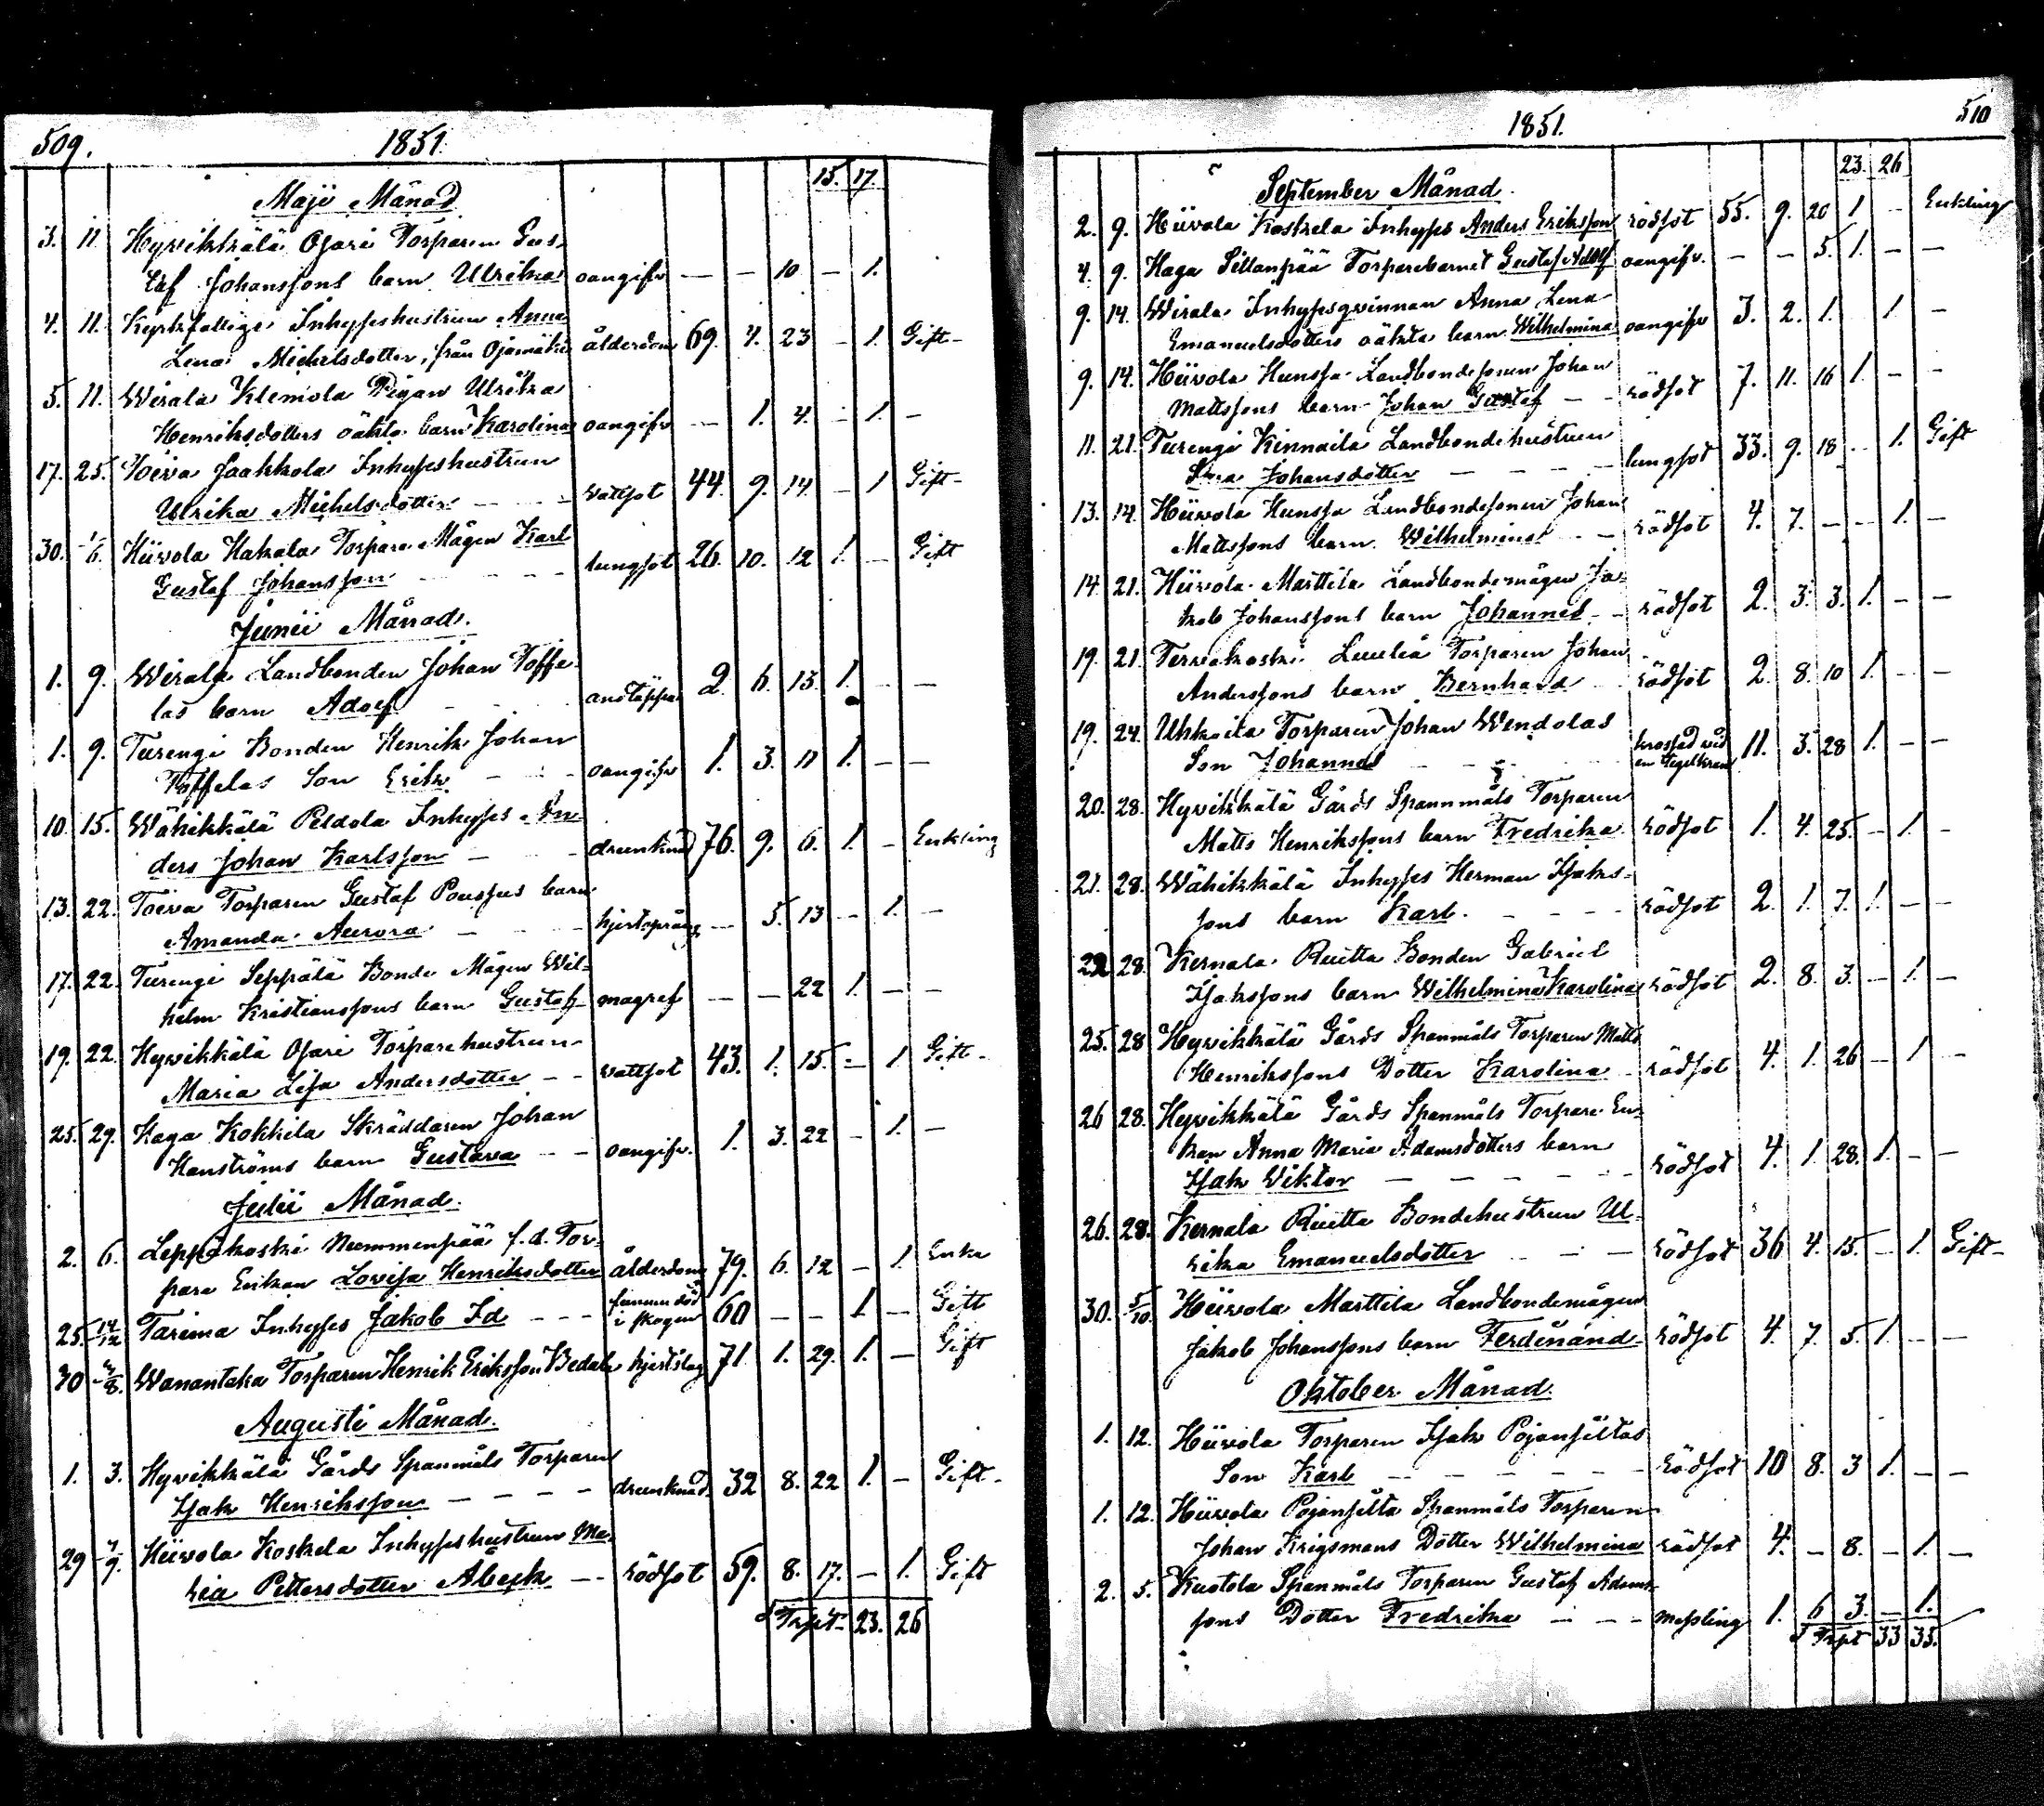 509. 1851.
15. 17.
Maji Månad
3. 11. Hyvikkälä Ojari Torparen Gus-
taf Johanssons barn Ulrika oangifv — — 10 — 1.
4. 11. Kyrkfattige Inhyseshustrun Anna
Lena Michelsdotter, från Ojamäki ålderdom 69. 4. 23 — 1. Gift-
5. 11. Wirala Klemola Pigan Ulrika
Henriksdotters oäkta barn Karolina oangifv — 1. 4. — 1. —
17. 25. Toiva Jaakkola Inhyseshustrun
Ulrika Michelsdotter — — wattsot 44. 9. 14. — 1 Gift-
30. 1/6. Hiivola Hakala Torpare Mågen Karl
Gustaf Johansson — — — lungsot 26. 10. 12 1. — Gift
Junii Månad.
1. 9. Wirala Landbonden Johan Toffe-
las barn Adolf — — andtäppa 2. 6. 13. 1. — —
1. 9. Turengi Bonden Henrik Johan
Toffelas Son Erik — — oangifv 1. 3. 11 1. — —
10. 15. Wähikkälä Peldola Inhyses An-
ders Johan Karlsson — — drunknad 76. 9. 6. 1. — Enkling
13. 22. Toiva Torparen Gustaf Pousus barn
Amanda Aurora — — hjertsprång — 5. 13 — 1. —
17. 22. Turengi Seppälä Bonde Mågen Wil-
helm Kristianssons barn Gustaf- magref — — 22 1. — —
19. 22. Hyvikkälä Ojari Torparehustrun
Maria Lisa Andersdotter — — wattsot 43. 1. 15. — 1 Gift-
25. 29. Haga Kokkila Skräddaren Johan
Hanströms barn Gustava — — oangifv. 1. 3. 22 — 1. —
Julii Månad.
2. 6. Leppäkoski Nummenpää f.d. Tor-
pare Enkan Lovisa Henriksdotter ålderdom 79. 6. 12 — 1 Enka
25. 14/12 Tarima Inhyses Jakob Id — — — funnen död
i skogen 60 — — 1 — Gift
30 3/8. Wanantaka Torparen Henrik Eriksson Bedala hjertslag 71 1. 29. 1. — Gift
Augusti Månad.
1. 3. Hyvikkälä Gårds Spanmåls Torparen
Isak Henriksson — — — — drunknad 32 8. 22 1. — Gift-
29 7/9. Hiivola Koskela Inhyseshustrun Ma-
ria Pettersdotter Abeck — rödsot 59. 8. 17. — 1. Gift
Trspt 23. 26
1851. 510
23. 26
September Månad.
2. 9. Hiivola Koskela Inhyses Anders Eriksson rödsot 55. 9. 20 1 — Enkling
4. 9. Haga Sillanpää Torparebarnet Gustaf Adolf oangifv. — — 5. 1. — —
9. 14. Wirala Inhysesqvinnan Anna Lena
Emanuelsdotters oäkta barn Wilhelmina oangifv 3. 2. 1. 1 —
9. 14. Hiivola Hunsa Landbondesonen Johan
Mattssons barn Johan Gustaf — — rödsot 7. 11. 16 1. — —
11. 21. Turengi Kinnaila Landbondehustrun
Lina Johansdotter — — — — lungsot 33. 9. 18 — 1. Gift
13. 14. Hiivola Hunsa Landbondesonen Johan
Mattssons barn Wilhelmina — — rödsot 4. 7. — — 1. —
14 21. Hiivola Marttila Landbondemågen Ja-
kob Johanssons barn Johannes — rödsot 2. 3. 3. 1. — —
19. 21. Tervakoski Luuliä Torparen Johan
Anderssons barn Bernhard — rödsot 2. 8. 10 1. — —
19. 24. Uhkoila Torparen Johan Wendolas
Son Johannes — — — krossad vid
en tegelkran 11. 3. 28 1. — —
20. 28. Hyvikkälä Gårds Spannmåls Torparen
Matts Henrikssons barn Fredrika rödsot 1. 4. 25. — 1. —
21. 28. Wähikkälä Inhyses Herman Isaks-
sons barn Karl — — — — rödsot 2. 1. 7. 1. — —
22 28. Kernala Ruitta Bonden Gabriel
Isakssons barn Wilhelmina Karolina rödsot 2. 8. 3. — 1. —
25. 28 Hyvikkälä Gårds Spanmåls Torparen Matts
Henrikssons Dotter Karolina — rödsot 4. 1. 26 — 1 —
26 28. Hyvikkälä Gårds Spanmåls Torpare En-
kan Anna Maria Adamsdotters barn
Isak Wiktor — — — — — rödsot 4. 1. 28. 1. — —
26. 28. Kernala Ruitta Bondehustrun Ul-
rika Emanuelsdotter — — — rödsot 36 4. 15. — 1. Gift-
30. 5/10. Hiivola Marttila Landbondemågen
Jakob Johanssons barn Ferdinand — rödsot 4. 7. 5. 1. — —
Oktober Månad.
1. 12. Hiivola Torparen Isak Pojansiltas
Son Karl — — — — — rödsot 10 8. 3 1. — —
1. 12. Hiivola Pojansilta Spanmåls Torparen
Johan Krigsmans Dotter Wilhelmina rödsot 4. — 8. — 1. —
2. 5. Kuotola Spanmåls Torparen Gustaf Adams-
sons Dotter Fredrika — — — messling 1. 6 3. — 1.
Trspt 33 35.